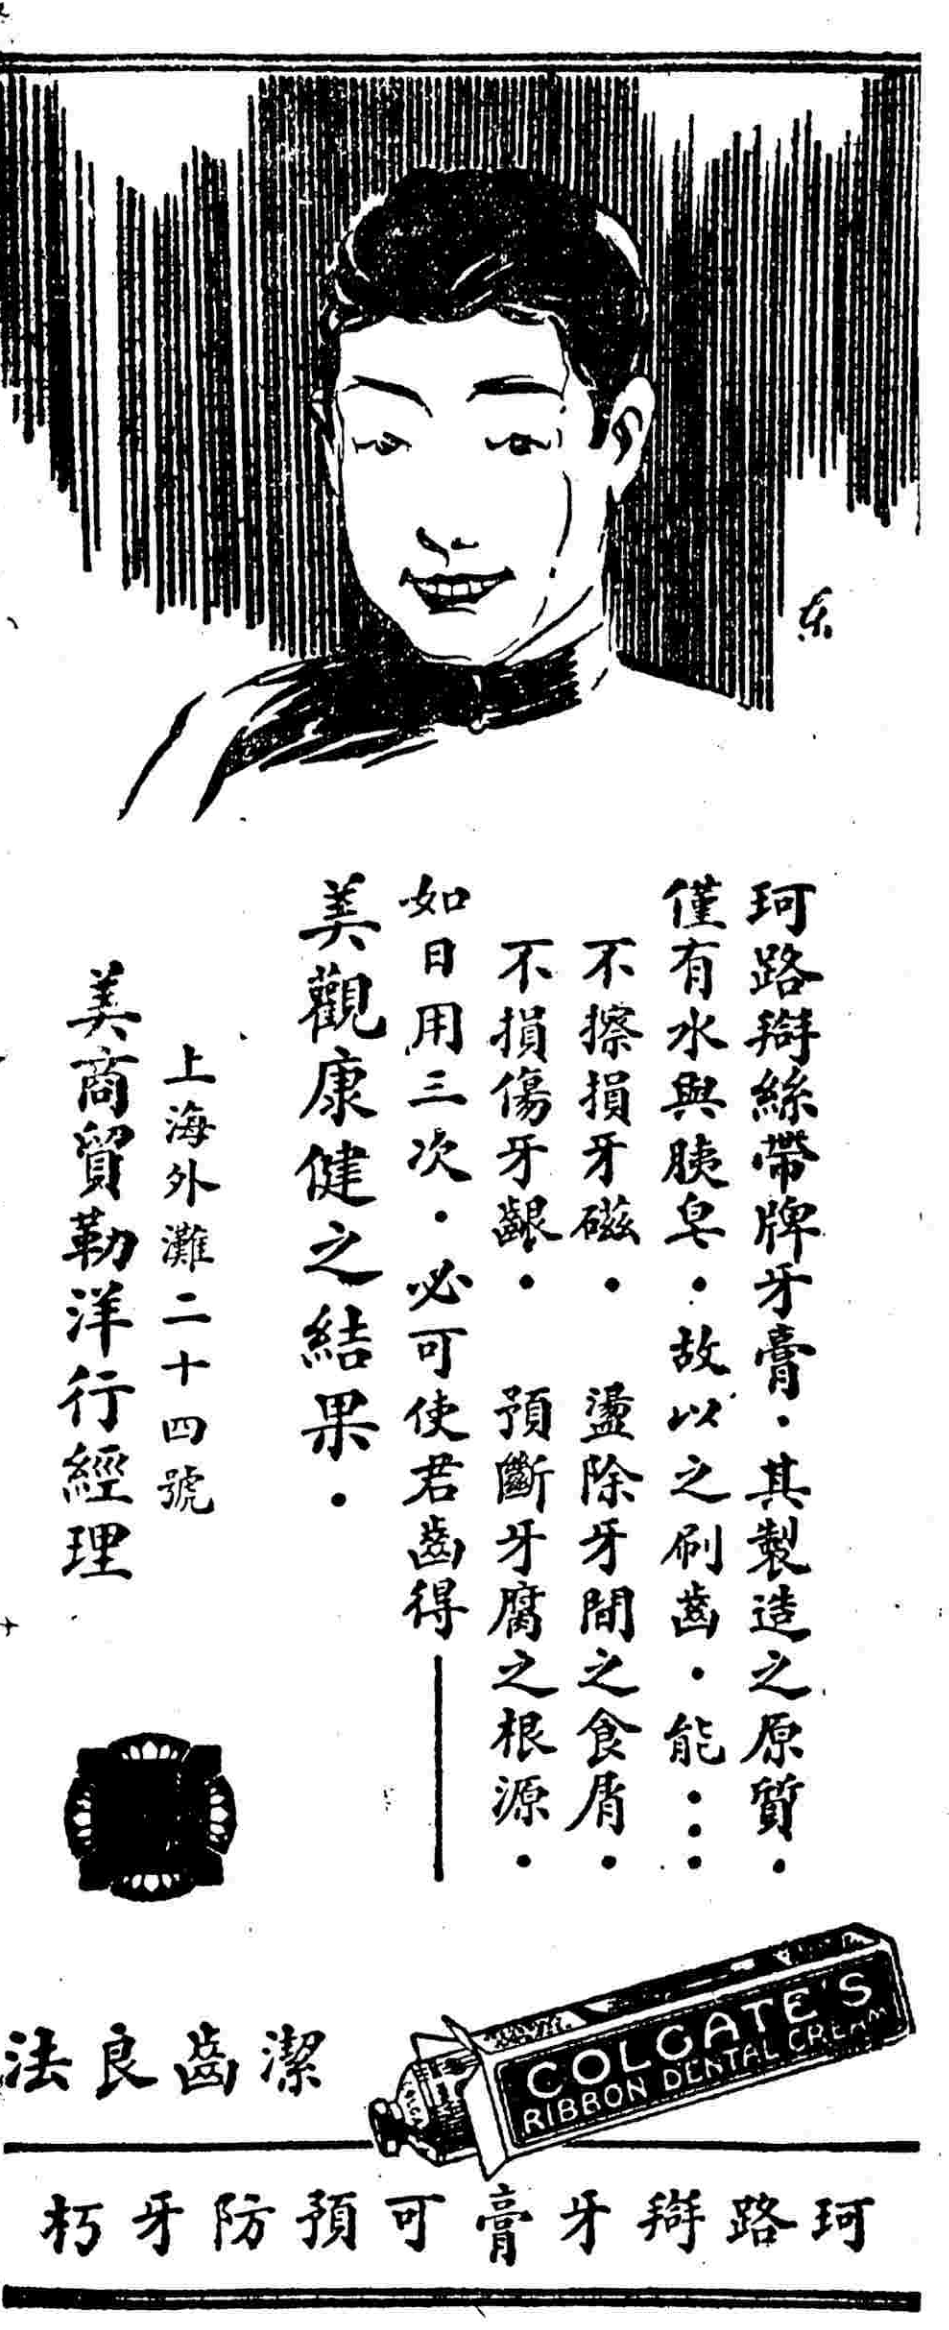 东
珂路搿絲帶牌牙膏・其製造之原質・
僅有水與胰皂・故以之刷齒・能・・・
不擦損牙磁・ 盪除牙間之食屑・
不損傷牙齦・ 預斷牙腐之根源・
如日用三次・必可使君齒得——
美觀康健之結果・
上海外灘二十四號
美商貿勒洋行經理
COLGATE'S
RIBBON DENTAL CREAM
潔齒良法
珂路搿牙膏可預防牙朽